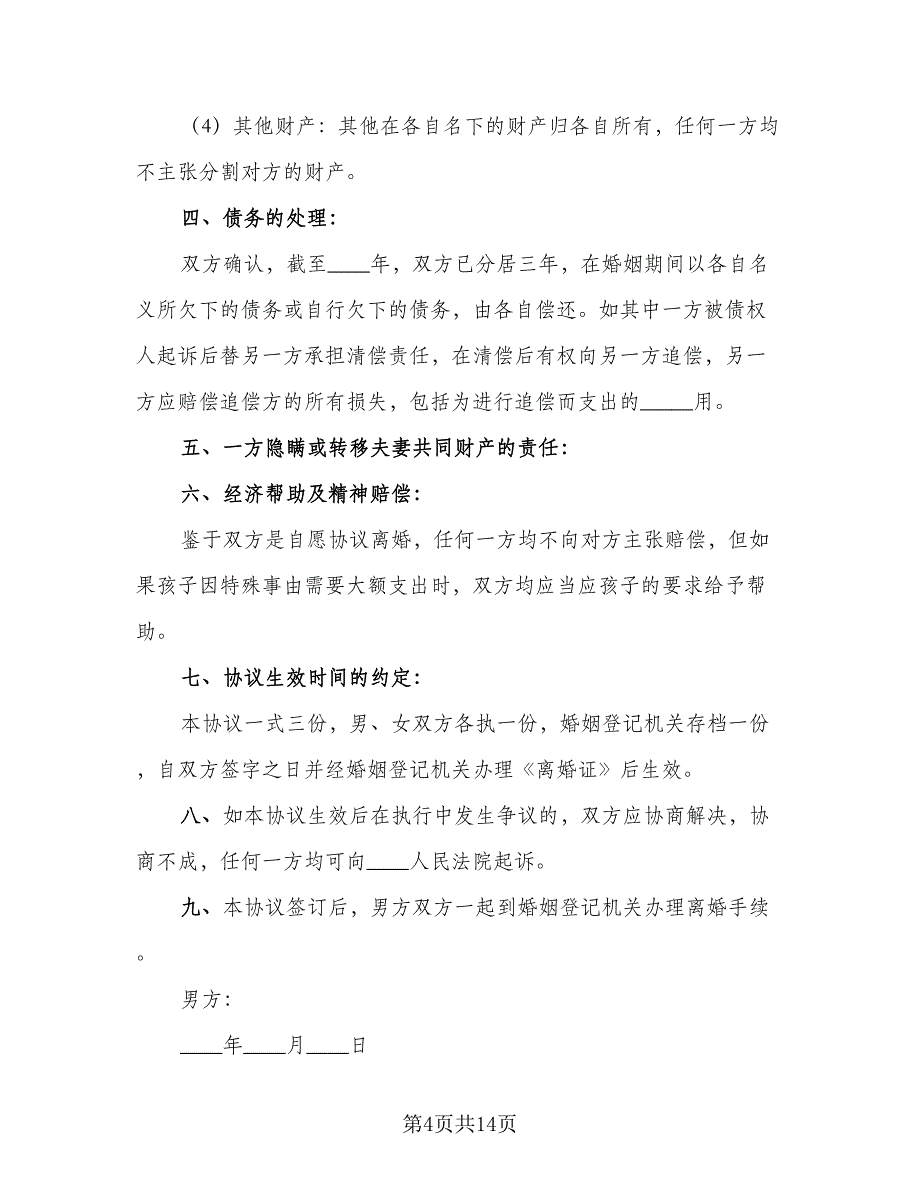 （4）其他财产：其他在各自名下的财产归各自所有，任何一方均
不主张分割对方的财产。
四、债务的处理：
双方确认，截至____年，双方已分居三年，在婚姻期间以各自名
义所欠下的债务或自行欠下的债务，由各自偿还。如其中一方被债权
人起诉后替另一方承担清偿责任，在清偿后有权向另一方追偿，另一
方应赔偿追偿方的所有损失，包括为进行追偿而支出的_____用。
五、一方隐瞒或转移夫妻共同财产的责任：
六、经济帮助及精神赔偿：
鉴于双方是自愿协议离婚，任何一方均不向对方主张赔偿，但如
果孩子因特殊事由需要大额支出时，双方均应当应孩子的要求给予帮
助。
七、协议生效时间的约定：
本协议一式三份，男、女双方各执一份，婚姻登记机关存档一份
，自双方签字之日并经婚姻登记机关办理《离婚证》后生效。
八、如本协议生效后在执行中发生争议的，双方应协商解决，协
商不成，任何一方均可向____人民法院起诉。
九、本协议签订后，男方双方一起到婚姻登记机关办理离婚手续
。
男方：
____年____月____日
第4页共14页